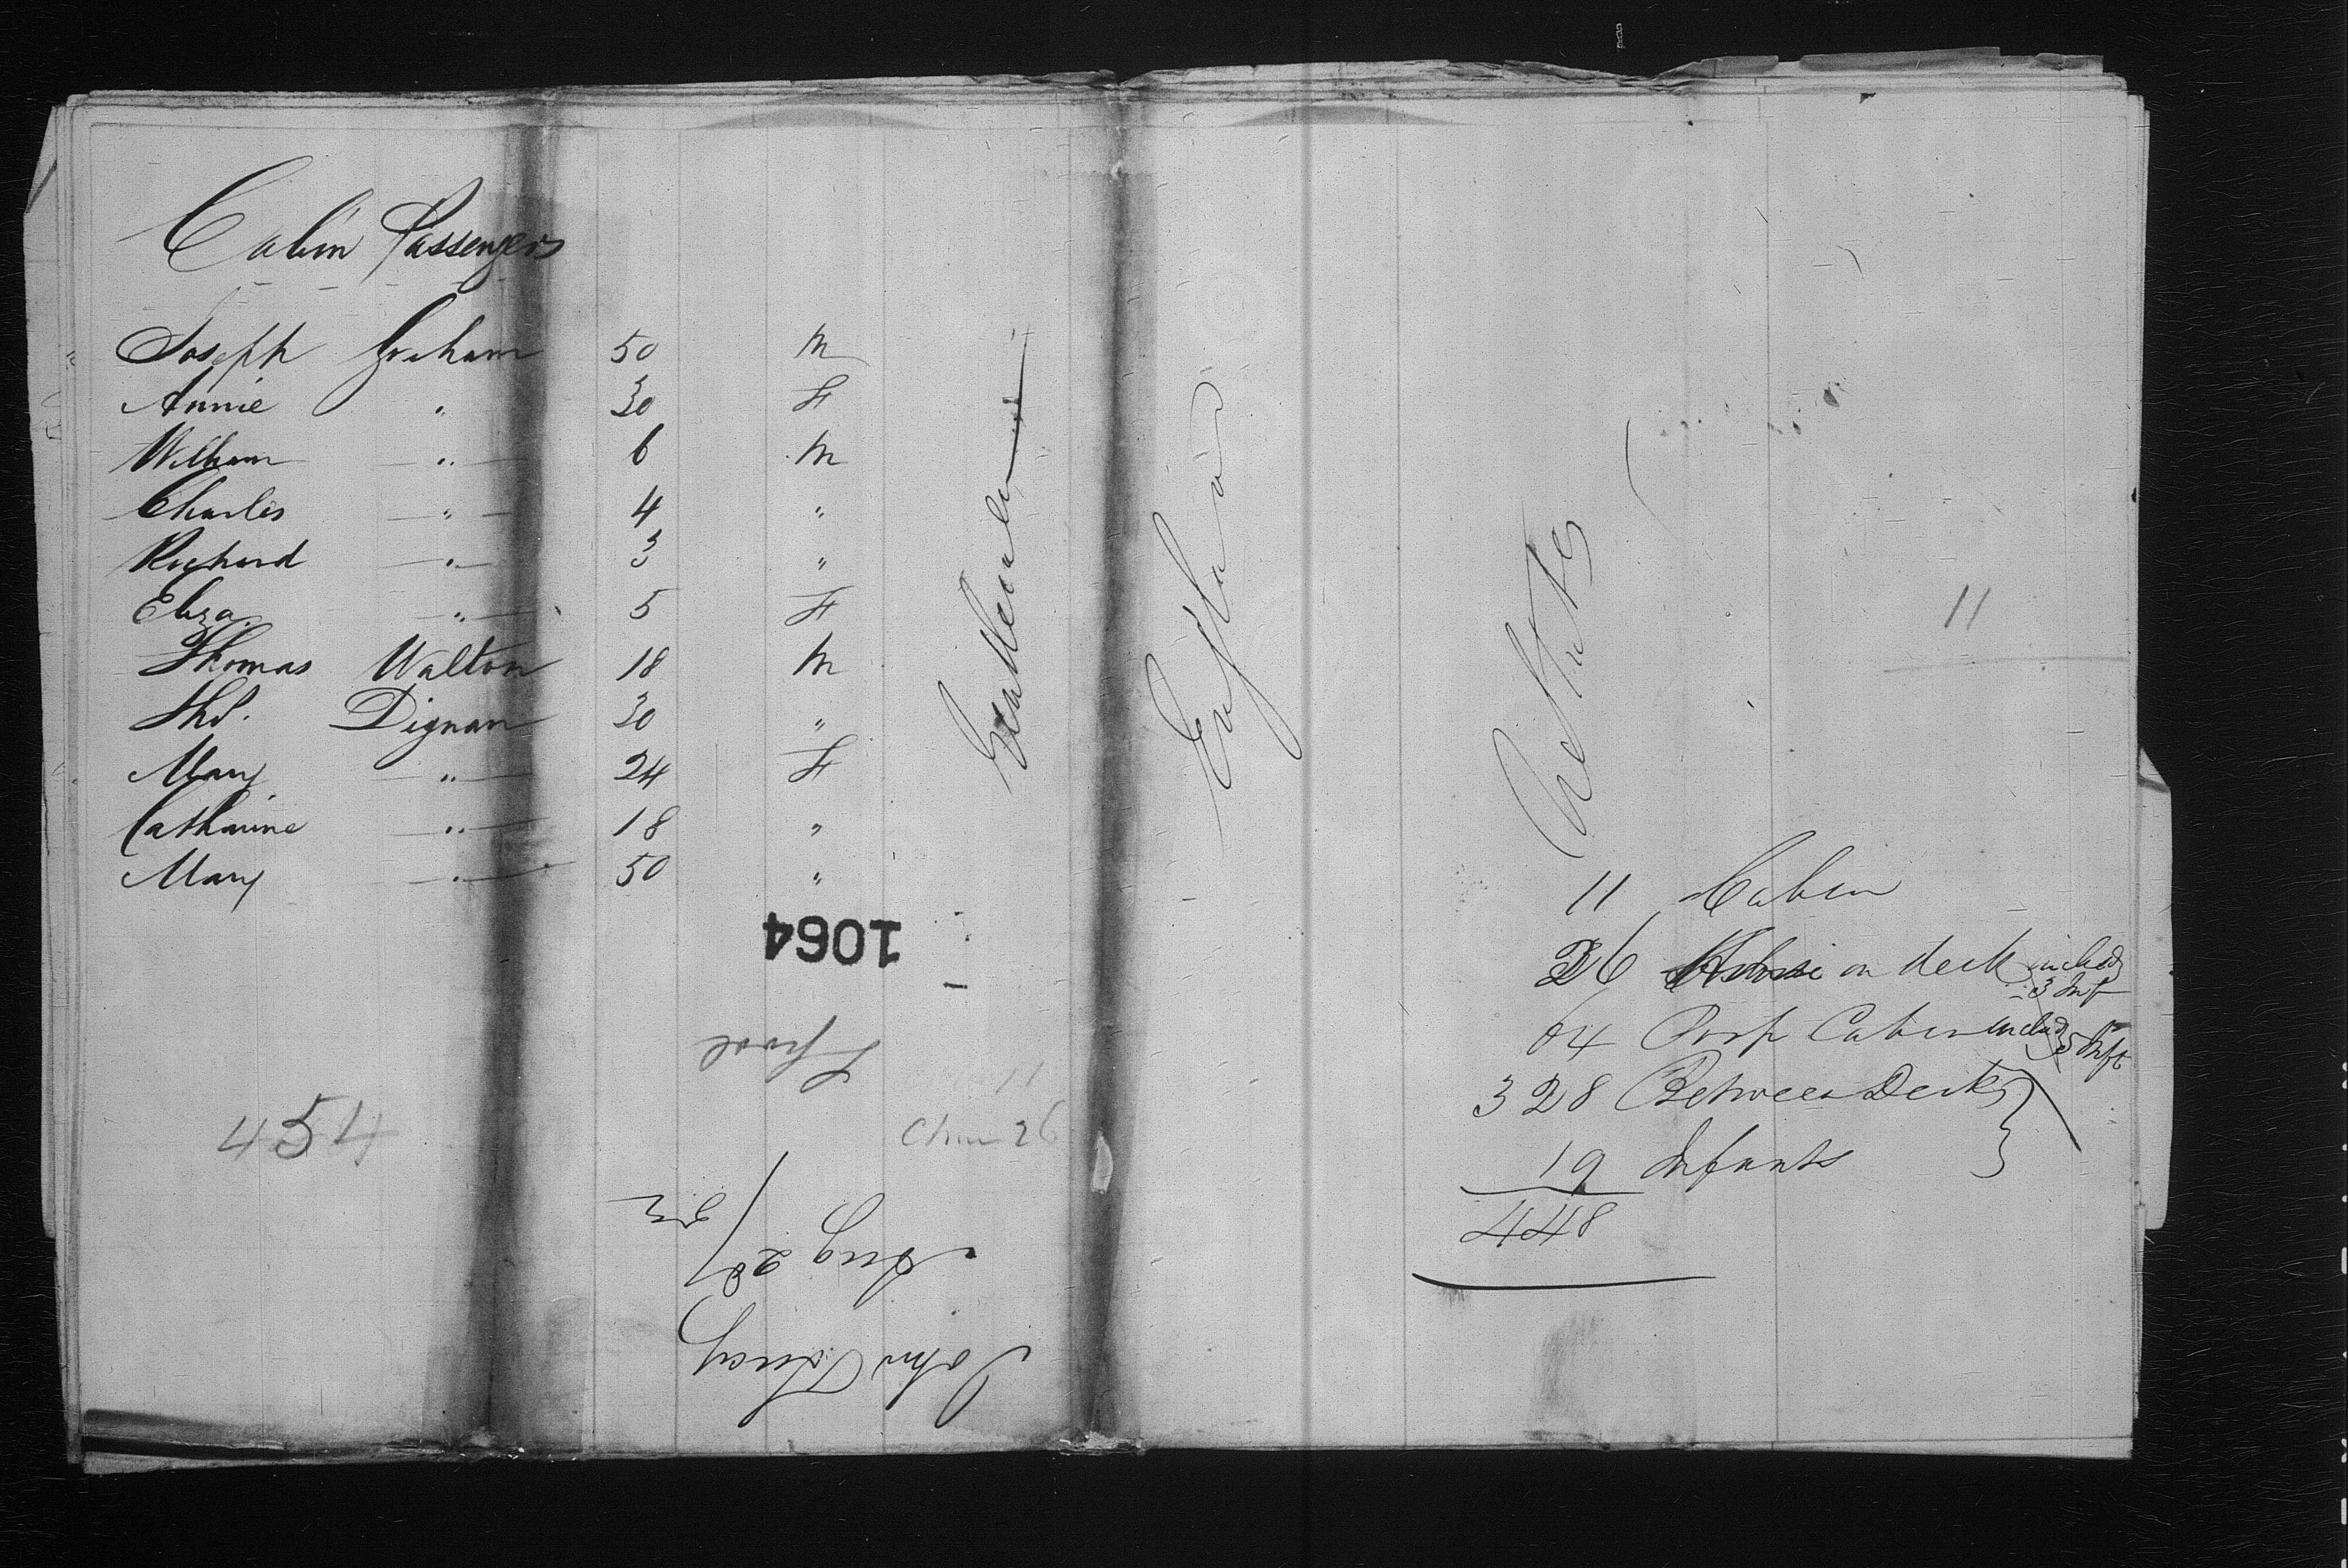 Cabin Passengers
Joseph Graham 50 M
Annie " 30 F
William " 6 M
Charles " 4 "
Richard " 3 "
Eliza " 5 F
Thomas Walton 18 M
Thos. Dignan 30 "
Mary " 24 F
Catharine " 18 "
Mary " 50 "
Gentlemen
England
U States
1064
Lpool
11
Chim 26
454
Aug 28/
John
11
11 Cabin
26 House on deck includg 3 Inf
64 Poop Cabin includg 5 Inft
328 Between Decks
19 Infants
448